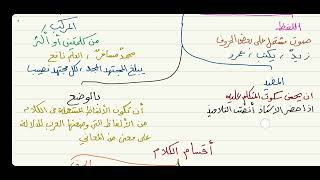 اللفظ
صوت مشتمل على بعض الحروف
زيد، يكتب، عمرو
المركب
من كلمتين أو أكثر
محمد مسافر، العلم نافع
يبلغ المجتهد المجد، لكل مجتهد نصيب
المفيد
أن يحسن سكوت المتكلم عليه
إذا حضر الأستاذ أنصت التلاميذ
بالوضع
أن تكون الألفاظ المستعملة في الكلام
من الألفاظ التي وضعتها العرب للدلالة
على معنى من المعاني
أقسام الكلام